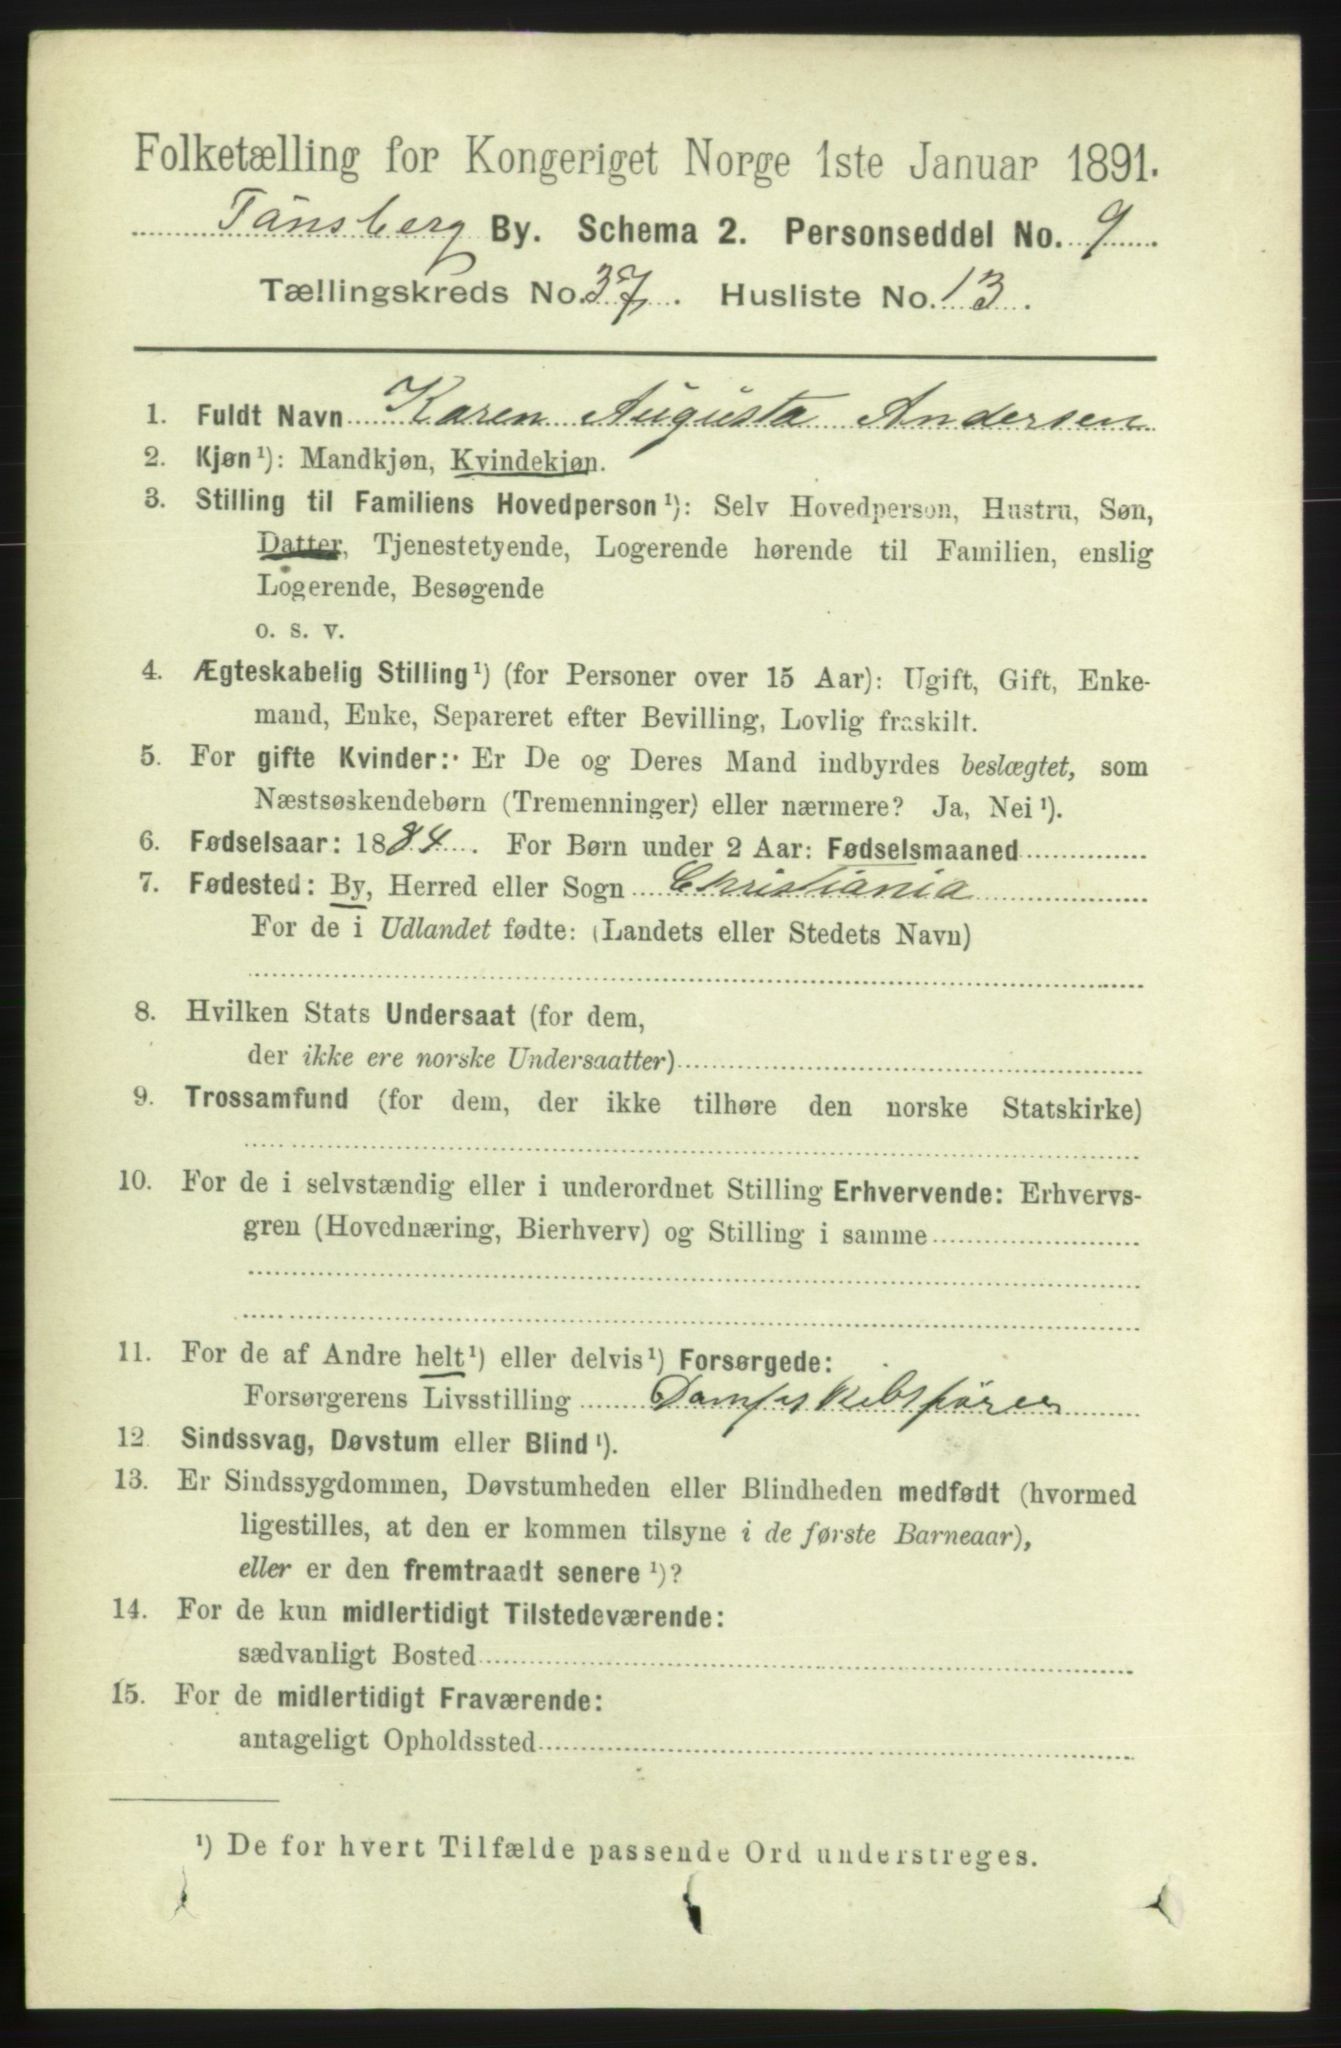 Folketælling for Kongeriget Norge 1ste Januar 1891.
Tönsberg By. Schema 2. Personseddel No. 9
Tællingskreds No. 37. Husliste No. 13.
1. Fuldt Navn Karen Augusta Andersen
2. Kjøn ¹): Mandkjøn, Kvindekjøn.
3. Stilling til Familiens Hovedperson ¹): Selv Hovedperson, Hustru, Søn,
Datter, Tjenestetyende, Logerende hørende til Familien, enslig
Logerende, Besøgende
o. s. v.
4. Ægteskabelig Stilling ¹) (for Personer over 15 Aar): Ugift, Gift, Enke-
mand, Enke, Separeret efter Bevilling, Lovlig fraskilt.
5. For gifte Kvinder: Er De og Deres Mand indbyrdes beslægtet, som
Næstsøskendebørn (Tremenninger) eller nærmere? Ja, Nei ¹).
6. Fødselsaar: 1884. For Børn under 2 Aar: Fødselsmaaned
7. Fødested: By, Herred eller Sogn Christiania
For de i Udlandet fødte: (Landets eller Stedets Navn)
8. Hvilken Stats Undersaat (for dem,
der ikke ere norske Undersaatter)
9. Trossamfund (for dem, der ikke tilhøre den norske Statskirke)
10. For de i selvstændig eller i underordnet Stilling Erhvervende: Erhvervs-
gren (Hovednæring, Bierhverv) og Stilling i samme
11. For de af Andre helt ¹) eller delvis ¹) Forsørgede:
Forsørgerens Livsstilling Dampskibsfører
12. Sindssvag, Døvstum eller Blind ¹).
13. Er Sindssygdommen, Døvstumheden eller Blindheden medfødt (hvormed
ligestilles, at den er kommen tilsyne i de første Barneaar),
eller er den fremtraadt senere ¹)?
14. For de kun midlertidigt Tilstedeværende:
sædvanligt Bosted
15. For de midlertidigt Fraværende:
antageligt Opholdssted
¹) De for hvert Tilfælde passende Ord understreges.